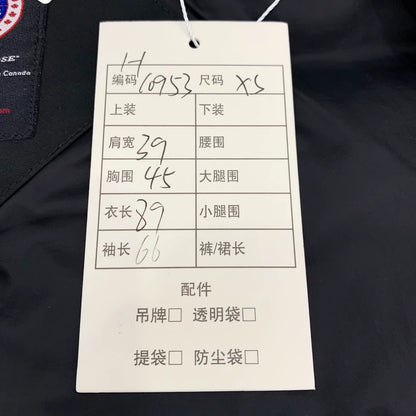 OSE
Canada
H
编码 10953 尺码 XS
上装 下装
肩宽 39 腰围
胸围 45 大腿围
衣长 89 小腿围
袖长 66 裤/裙长
配件
吊牌□ 透明袋□
提袋□ 防尘袋□